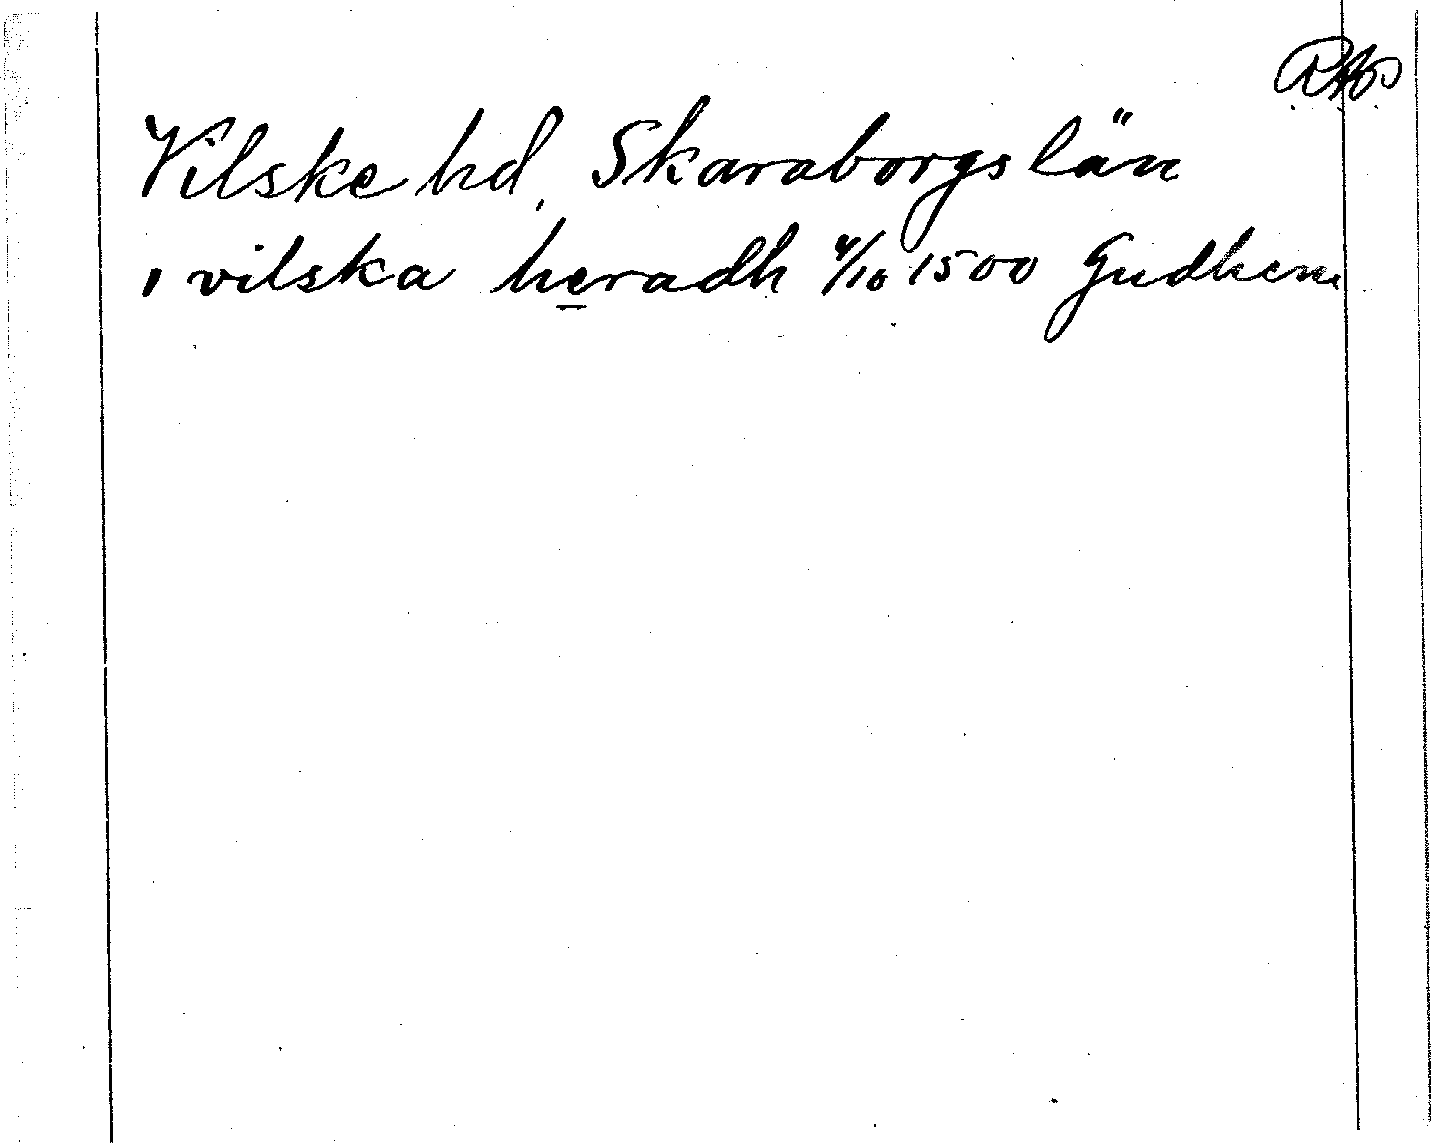 RAp
Vilske hd, Skaraborgs län
i vilska heradh 4/10 1500 Gudhem